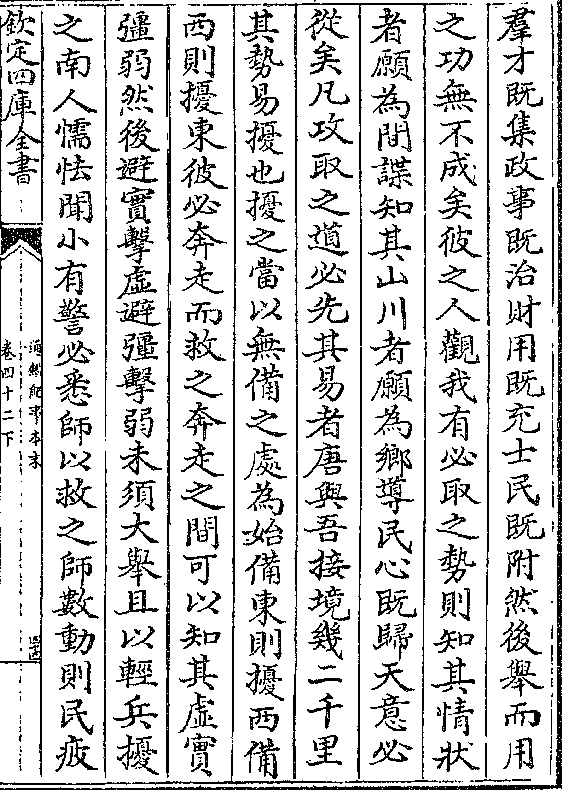 羣才既集政事既治財用既充士民既附然後舉而用
之功無不成矣彼之人觀我有必取之勢則知其情狀
者願為間諜知其山川者願為鄉導民心既歸天意必
從矣凡攻取之道必先其易者唐與吾接境幾二千里
其勢易擾也擾之當以無備之處為始備東則擾西備
西則擾東彼必奔走而救之奔走之間可以知其虛實
彊弱然後避實擊虛避彊擊弱未須大舉且以輕兵擾
之南人懦怯聞小有警必悉師以救之師數動則民疲
欽定四庫全書
通鑑紀事本末
卷四十二下